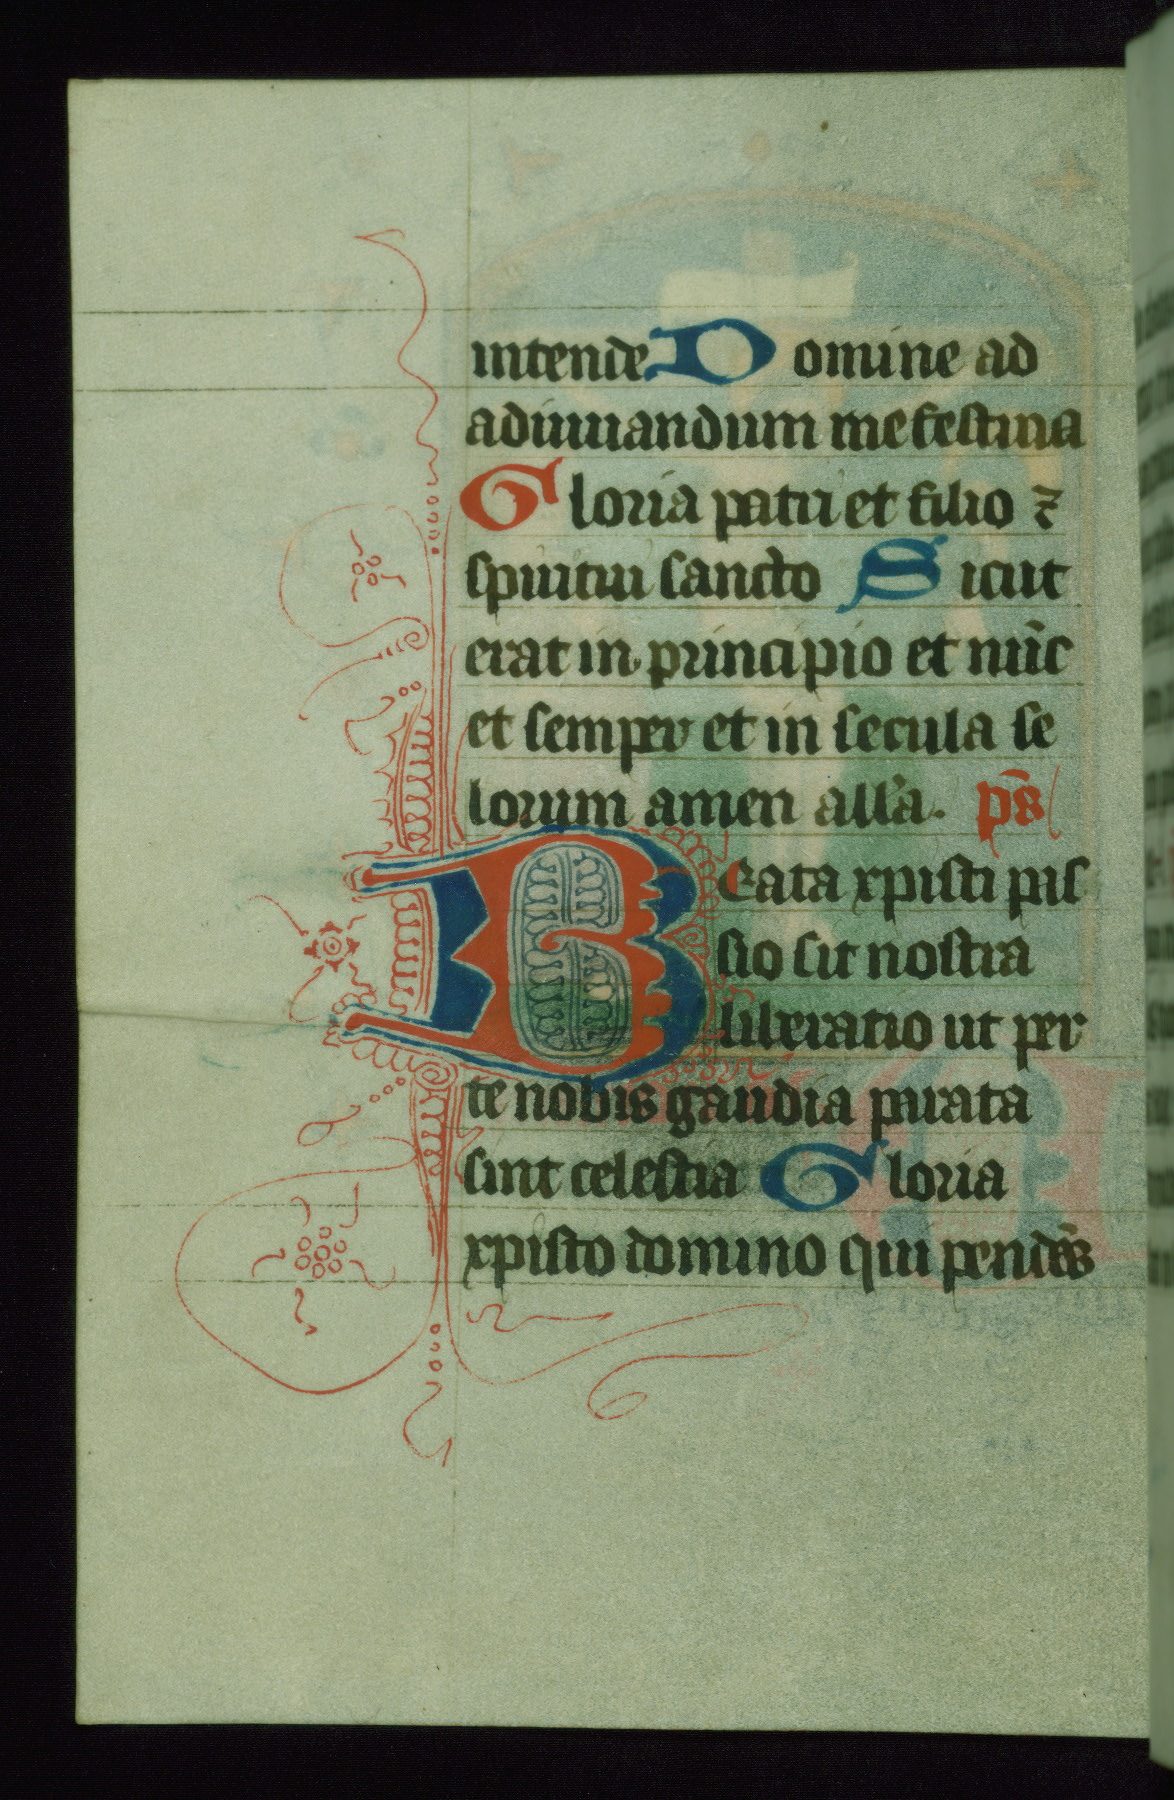 intende Domine ad
adiuuandum me festina
Gloria patri et filio ⁊
spiritui sancto Sicut
erat in principio et nūc
et semper et in secula se
lorum amen all'a. ps̄
Beata xpisti pas
sio sit nostra
liberatio ut per
te nobis gaudia parata
sint celestia Gloria
xpisto domino qui pendēs